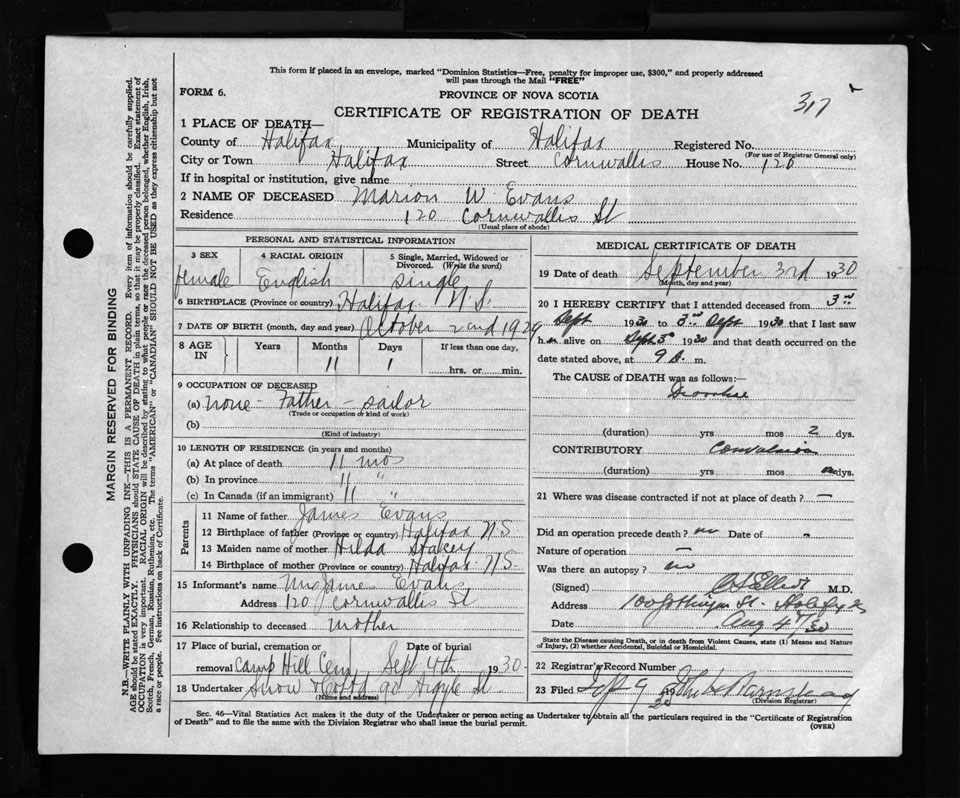 This form if placed in an envelope, marked "Dominion Statistics—Free, penalty for improper use, $300," and properly addressed
will pass through the Mail "FREE"
FORM 6.
PROVINCE OF NOVA SCOTIA
317
CERTIFICATE OF REGISTRATION OF DEATH
1 PLACE OF DEATH—
County of Halifax Municipality of Halifax Registered No.
(For use of Registrar General only)
City or Town Halifax Street Cornwallis House No. 120
If in hospital or institution, give name
2 NAME OF DECEASED Marion W. Evans
Residence 120 Cornwallis St
(Usual place of abode)
PERSONAL AND STATISTICAL INFORMATION
3 SEX 4 RACIAL ORIGIN 5 Single, Married, Widowed or
Divorced. (Write the word)
female English Single
6 BIRTHPLACE (Province or country) Halifax N.S.
7 DATE OF BIRTH (month, day and year) October 2nd 1929
8 AGE IN Years Months Days If less than one day,
11 1 hrs. or min.
9 OCCUPATION OF DECEASED
(a) none - Father - sailor
(Trade or occupation or kind of work)
(b)
(Kind of industry)
10 LENGTH OF RESIDENCE (in years and months)
(a) At place of death 11 mos
(b) In province 11 "
(c) In Canada (if an immigrant) 11 "
Parents
11 Name of father James Evans
12 Birthplace of father (Province or country) Halifax NS
13 Maiden name of mother Hilda Stacey
14 Birthplace of mother (Province or country) Halifax NS
15 Informant's name Mrs James Evans
Address 120 Cornwallis St
16 Relationship to deceased mother
17 Place of burial, cremation or Date of burial
removal Camp Hill Cem Sept 4th 1930
18 Undertaker Snow & Co Ltd 90 Argyle St
(Name and address)
MEDICAL CERTIFICATE OF DEATH
19 Date of death September 3rd 1930
(Month, day and year)
20 I HEREBY CERTIFY that I attended deceased from 3rd
Sept 1930 to 3rd Sept 1930 that I last saw
h alive on Sept 1930 and that death occurred on the
date stated above, at 9 A. m.
The CAUSE OF DEATH was as follows:—
(duration) yrs mos 2 dys.
CONTRIBUTORY Convulsion
(duration) yrs mos dys.
21 Where was disease contracted if not at place of death? —
Did an operation precede death? no Date of -
Nature of operation —
Was there an autopsy? no
(Signed) M.D.
Address 100 Gottingen St. Halifax
Date Aug 4/30
State the Disease causing Death, or in death from Violent Causes, state (1) Means and Nature
of Injury, (2) whether Accidental, Suicidal or Homicidal.
22 Registrar's Record Number
23 Filed
(Division Registrar)
Sec. 46—Vital Statistics Act makes it the duty of the Undertaker or person acting as Undertaker to obtain all the particulars required in the "Certificate of Registration
of Death" and to file the same with the Division Registrar who shall issue the burial permit.
(OVER)
MARGIN RESERVED FOR BINDING
N.B.—WRITE PLAINLY WITH UNFADING INK—THIS IS A PERMANENT RECORD. Every item of information should be carefully supplied.
AGE should be stated EXACTLY. PHYSICIANS should STATE CAUSE OF DEATH in plain terms, so that it may be properly classified. Exact statement of
OCCUPATION is very important. RACIAL ORIGIN will be described by stating to what people or race the deceased person belonged, whether English, Irish,
Scotch, French, German, Russian, Ruthenian, etc. The terms "AMERICAN" or "CANADIAN" SHOULD NOT BE USED as they express citizenship but not
a race or people. See instructions on back of Certificate.